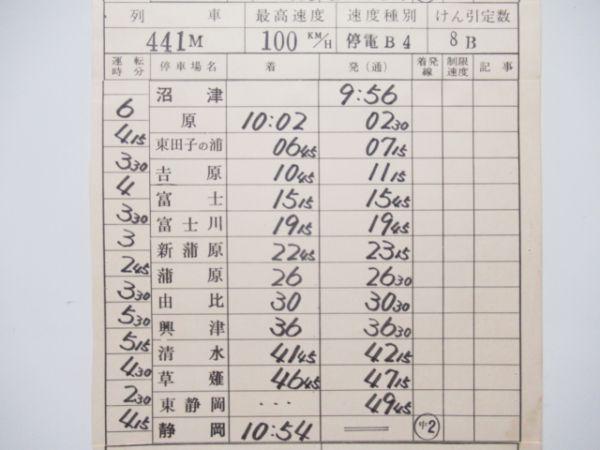 列車 最高速度 速度種別 けん引定数
441M 100 KM/H 停電B4 8B
運転時分 停車場名 着 発(通) 着発線 制限速度 記事
沼津 9:56
6
原 10:02 02 30
4 15
東田子の浦 06 45 07 15
3 30
吉原 10 45 11 15
4
富士 15 15 15 45
3 30
富士川 19 15 19 45
3
新蒲原 22 45 23 15
2 45
蒲原 26 26 30
3 30
由比 30 30 30
5 30
興津 36 36 30
5 15
清水 41 45 42 15
4 30
草薙 46 45 47 15
2 30
東静岡 ... 49 45
4 15
静岡 10:54 ══ 中2